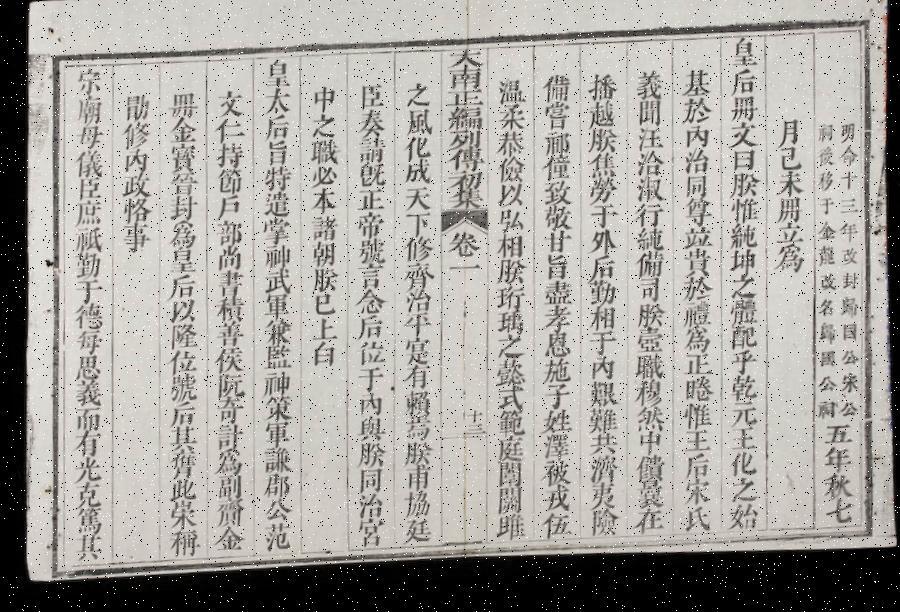 明命十三年改封歸国公宋公
祠後移于金龍改名歸國公祠五年秋七
月己未冊立為
皇后冊文曰朕惟純坤之體配乎乾元王化之始
基於內治同尊竝貴於體為正睠惟王后宋氏
義聞汪洽淑行純備司朕壼職穆然中饋曩在
播越朕焦勞于外后勤相于內艱難共濟夷險
備嘗郿僮致敬甘旨盡孝恩施子姓澤被戎伍
溫柔恭儉以弘相朕珩璃之懿式範庭闈關雎
大南正編列傳初集 卷一 十三
之風化成天下修齊治平寔有賴焉朕甫協廷
臣奏請旣正帝號言念后位于內與朕同治宮
中之職必本諸朝朕已上白
皇太后旨特遣掌神武軍兼監神策軍謙郡公范
文仁持節戶部尚書積善侯阮奇計為副齎金
冊金寶晉封為皇后以隆位號后其膺此崇稱
勖修內政恪事
宗廟母儀臣庶祗勤于德毋思義而有光克篤其